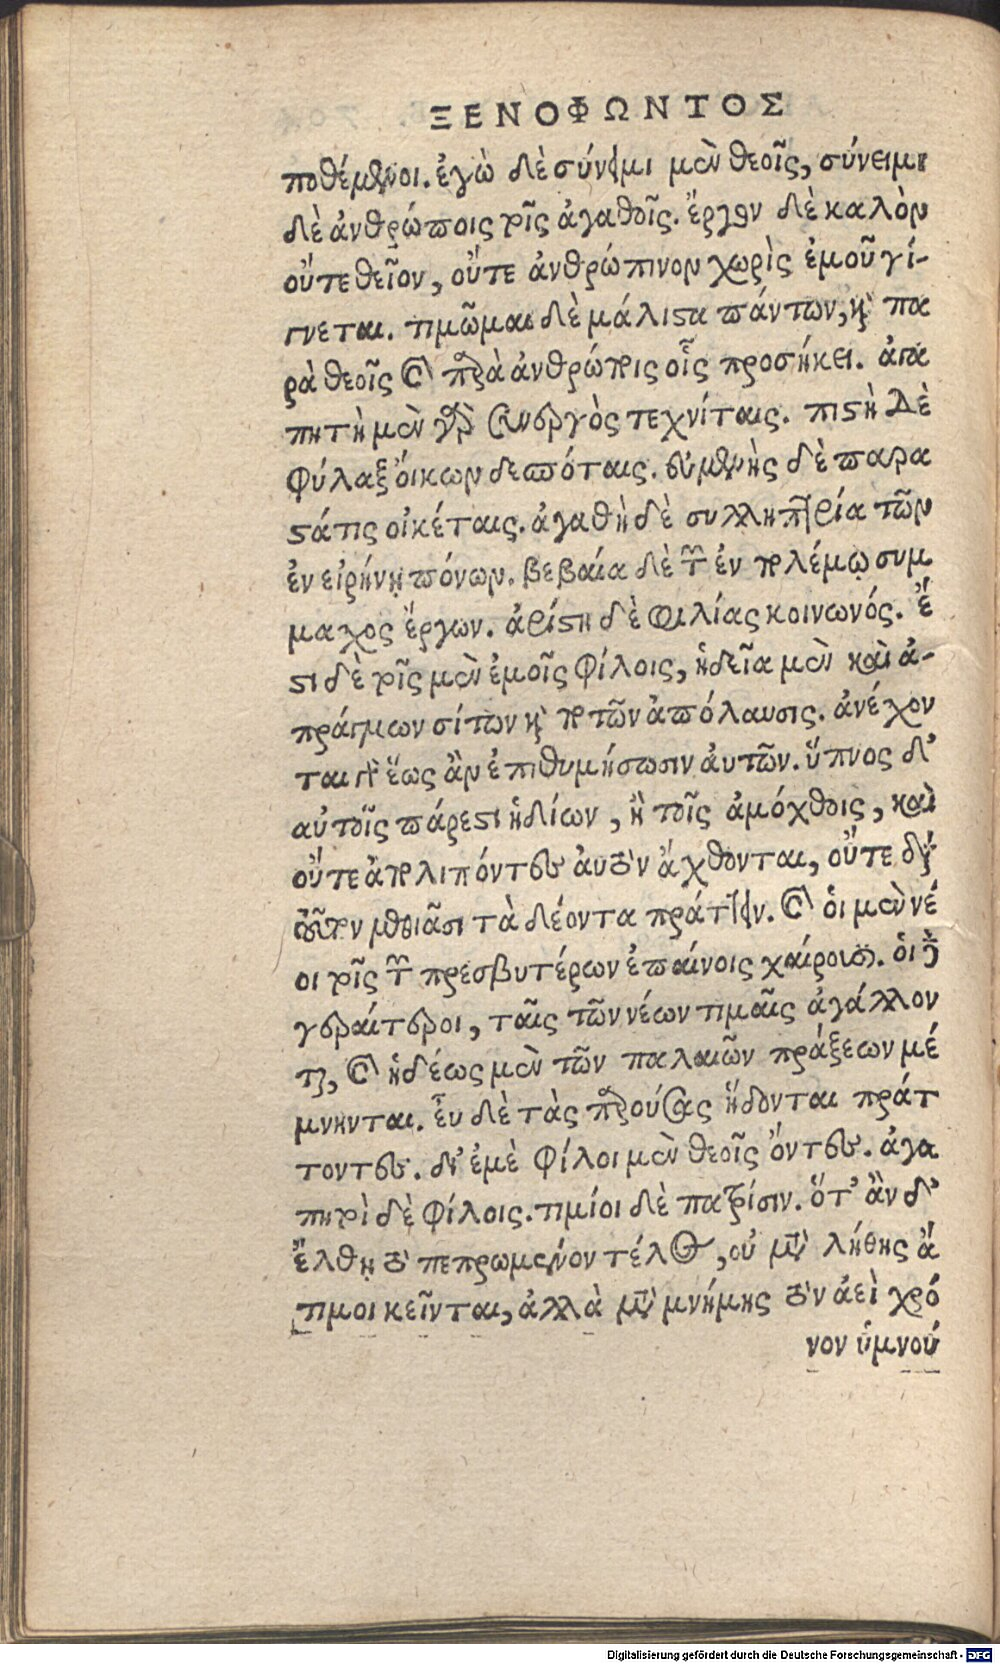 ΞΕΝΟΦΩΝΤΟΣ
ποθέμενοι. ἐγὼ δὲ σύνειμι μὲν θεοῖς, σύνειμι
δὲ ἀνθρώποις τοῖς ἀγαθοῖς. ἔργον δὲ καλὸν
οὔτε θεῖον, οὔτε ἀνθρώπινον χωρὶς ἐμοῦ γί-
γνεται. τιμῶμαι δὲ μάλιστα πάντων, καὶ πα
ρὰ θεοῖς καὶ παρὰ ἀνθρώποις οἷς προσήκει. ἀγα
πητὴ μὲν γὰρ συνεργὸς τεχνίταις. πιστὴ δὲ
φύλαξ ὄικων δεσπόταις. εὐμενὴς δὲ παρα
στάτις οἰκέταις. ἀγαθὴ δὲ συλλήπτρια τῶν
ἐν εἰρήνῃ πόνων. βεβαία δὲ τῶν ἐν πολέμῳ συμ
μαχος ἔργων. ἀρίστη δὲ φιλίας κοινωνός. ἔ
στι δὲ τοῖς μὲν ἐμοῖς φίλοις, ἡδεῖα μὲν καὶ ἀ-
πράγμων σίτων καὶ ποτῶν ἀπόλαυσις. ἀνέχον
ται γὰρ ἕως ἂν ἐπιθυμήσωσιν ἀυτῶν. ὕπνος δ'
αὐτοῖς πάρεστι ἡδίων, ἢ τοῖς ἀμόχθοις, καὶ
οὔτε ἀπολιπόντες ἀυτὸν ἄχθονται, οὔτε διὰ
τοῦτον μεθιᾶσι τὰ δέοντα πράττειν. καὶ ὁι μὲν νέ
οι τοῖς τῶν πρεσβυτέρων ἐπαίνοις χαίρουσιν. ὁι δὲ
γεραίτεροι, ταῖς τῶν νέων τιμαῖς ἀγάλλον
ται, καὶ ἡδέως μὲν τῶν παλαιῶν πράξεων μέ
μνηνται. ἖υ δὲ τὰς παρούσας ἥδονται πράτ
τοντες. δι' ἐμὲ φίλοι μὲν θεοῖς ὄντες. ἀγα
πητοὶ δὲ φίλοις. τιμίοι δὲ πατρίσιν. ὅτ' ἂν δ'
ἔλθῃ τὸ πεπρωμένον τέλος, οὐ μετὰ λήθης ἄ
τιμοι κεῖνται, ἀλλὰ μετὰ μνήμης τὸν ἀεὶ χρό
νον ὑμνού
Digitalisierung gefördert durch die Deutsche Forschungsgemeinschaft - DFG